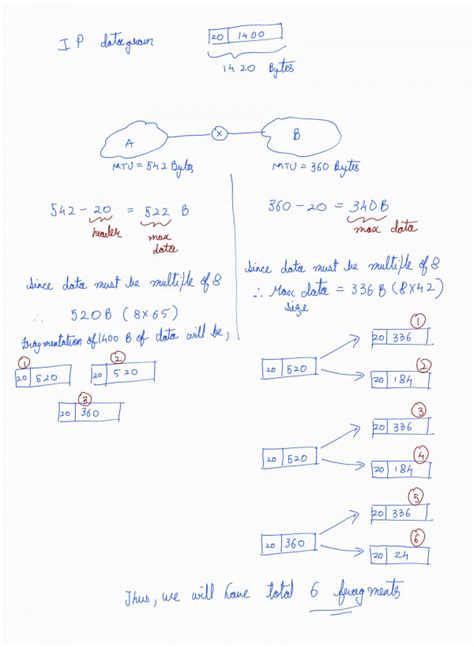 IP datagram
20 | 1400
1420 Bytes
A
×
B
MTU = 542 Bytes
MTU = 360 Bytes
542 - 20 = 522 B
header
max data
since data must be multiple of 8
∴ 520 B (8×65)
Fragmentation of 1400 B of data will be,
1
20 | 520
2
20 | 520
3
20 | 360
360 - 20 = 340 B
max data
Since data must be multiple of 8
∴ Max data = 336 B (8×42)
size
20 | 520
1
20 | 336
2
20 | 184
20 | 520
3
20 | 336
4
20 | 184
20 | 360
5
20 | 336
6
20 | 24
Thus, we will have total 6 fragments